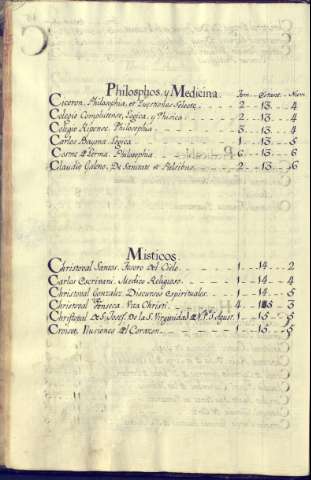 C
Philosphos. y Medicina. Tom. Estant. Num.
Ciceron. Philosophia, et Questiones Selecte. 2 - 13 - 4
Colegio Complutense, Logica, y Phisica. 2 - 13 - 4
Colegio Ripense. Philosophia. 3 - 13 - 4
Carlos Bayona. Logica. 1 - 13 - 5
Cosme de Lerma. Philosophia. 6 - 13 - 6
Claudio Galeno. De Sanitate et Febribus. 2 - 13 - 6
Misticos.
Christoval Santos. Tesoro del Cielo. 1 - 14 - 2
Carlos Escrivani. Medico Religioso. 1 - 14 - 4
Christoval Gonzalez. Discursos Espirituales. 1 - 14 - 5
Christoval Fonseca. Vita Christi. 4 - 15 - 3
Christoval de S. Josef. De la S. Virginidad de N. P. S. Agust. 1 - 15 - 5
Croiset. Ilusiones del Corazon. 1 - 15 - 5